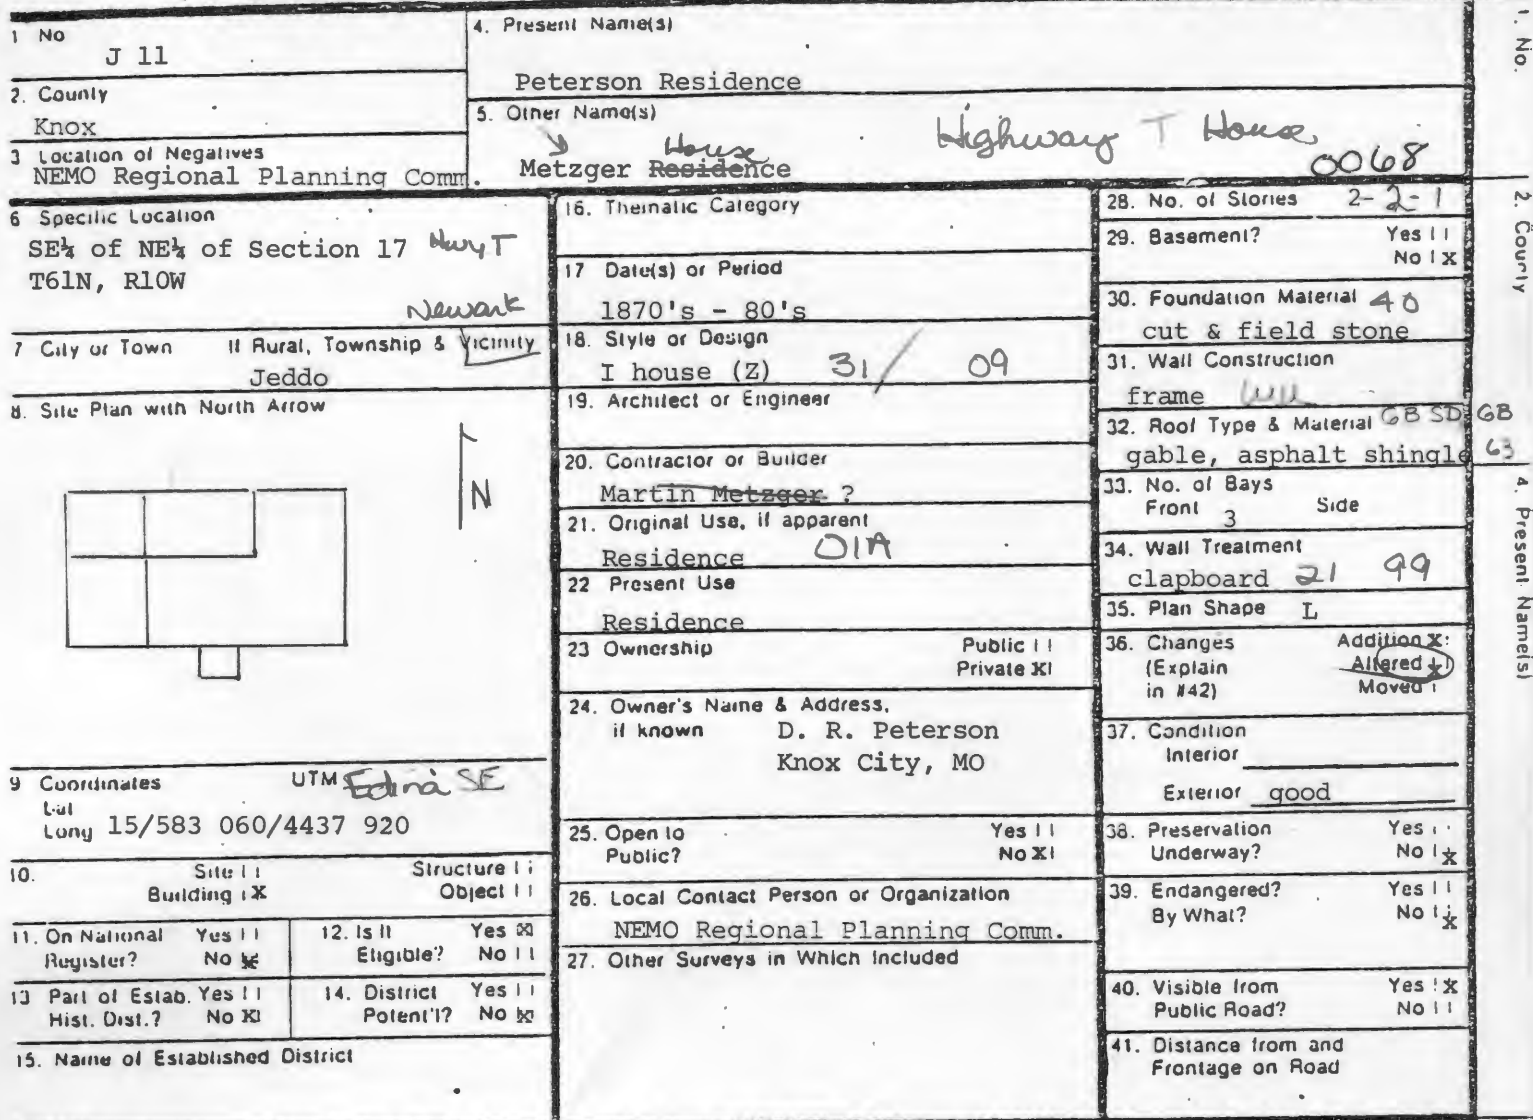 1 No
J 11
2. County
Knox
3 Location of Negatives
NEMO Regional Planning Comm.
4. Present Name(s)
Peterson Residence
5. Other Name(s)
Highway T House
House
Metzger Residence
0068
6 Specific Location
SE¼ of NE¼ of Section 17 Hwy T
T61N, R10W
Newark
7 City or Town If Rural, Township & Vicinity
Jeddo
8. Site Plan with North Arrow
N
9 Coordinates UTM Edina SE
Lat
Long 15/583 060/4437 920
10. Site | | Structure | |
Building | X Object | |
11. On National Register? Yes | | No X
12. Is It Eligible? Yes X No | |
13 Part of Estab. Hist. Dist.? Yes | | No X|
14. District Potent'l? Yes | | No X
15. Name of Established District
16. Thematic Category
17 Date(s) or Period
1870's - 80's
18. Style or Design
I house (Z) 31/ 09
19. Architect or Engineer
20. Contractor or Builder
Martin Metzger ?
21. Original Use, if apparent
Residence 01A
22 Present Use
Residence
23 Ownership Public | |
Private X|
24. Owner's Name & Address,
if known D. R. Peterson
Knox City, MO
25. Open to Yes | |
Public? No X|
26. Local Contact Person or Organization
NEMO Regional Planning Comm.
27. Other Surveys in Which Included
28. No. of Stories 2-2-1
29. Basement? Yes | |
No | X
30. Foundation Material 40
cut & field stone
31. Wall Construction
frame
32. Roof Type & Material GB SD GB
gable, asphalt shingle 63
33. No. of Bays
Front 3 Side
34. Wall Treatment
clapboard 21 99
35. Plan Shape L
36. Changes Addition X
(Explain Altered X
in #42) Moved |
37. Condition
Interior
Exterior good
38. Preservation Yes
Underway? No | X
39. Endangered? Yes | |
By What? No | X
40. Visible from Yes | X
Public Road? No | |
41. Distance from and
Frontage on Road
1. No.
2. County
4. Present Name(s)